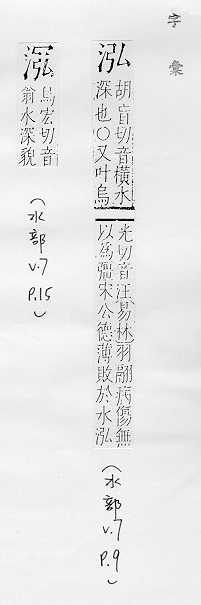 字彙
泓
胡盲切音橫水
深也○又叶烏
光切音汪易林羽翮病傷無
以爲彊宋公德薄敗於水泓
(水部 v.7 P.9)
烏宏切音
翁水深貌
(水部 v.7 P.15)